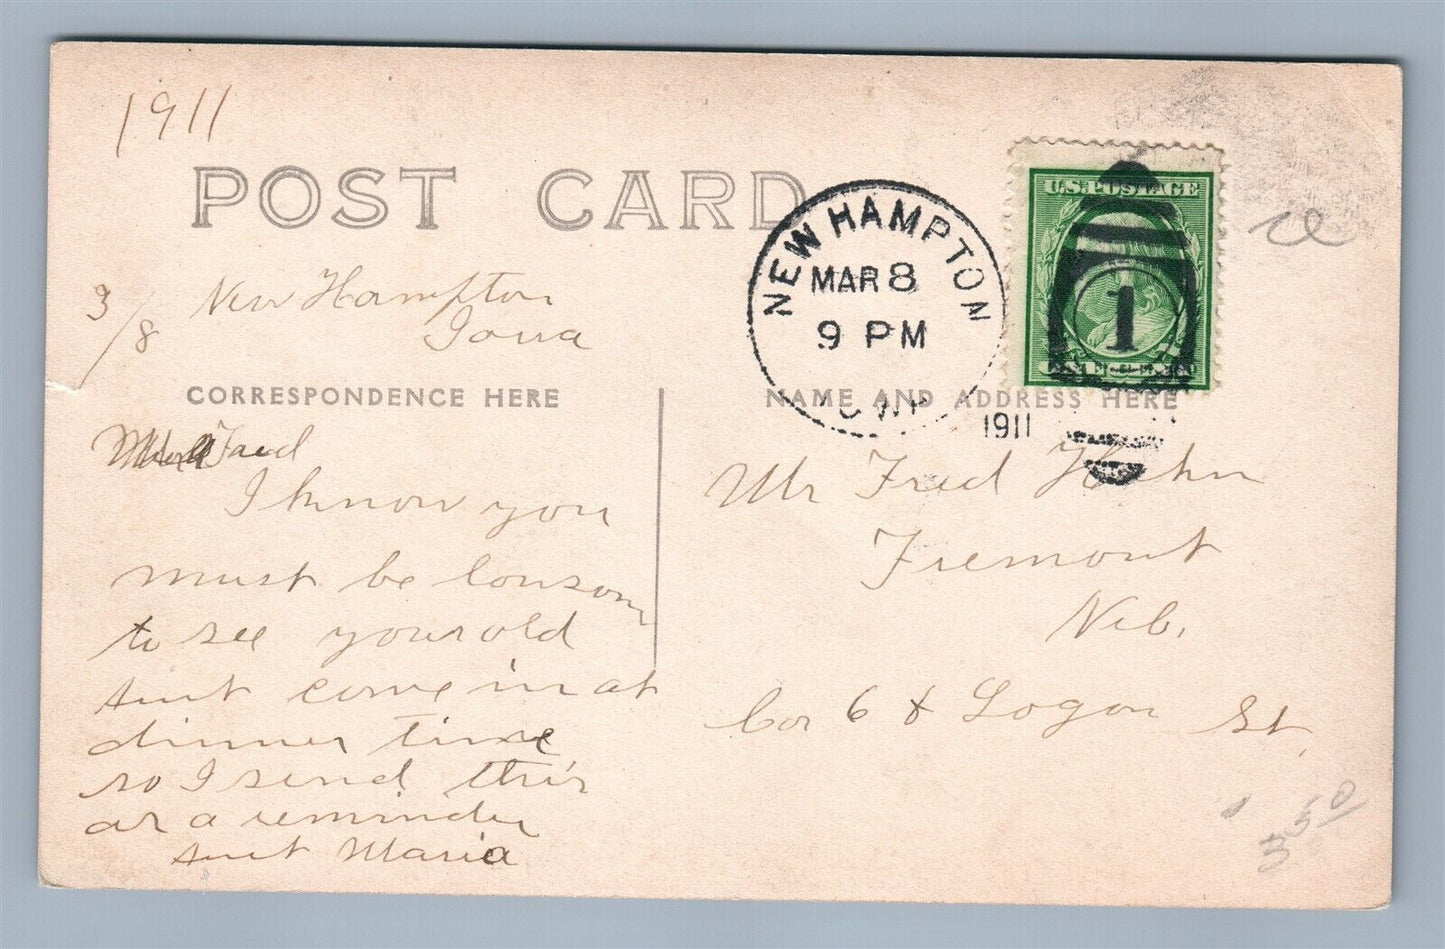 1911
POST CARD
3/8 New Hampton
Iowa
CORRESPONDENCE HERE
Fred
I know you
must be lonsom
to see your old
Aunt come in at
dinner time
so I send this
as a reminder
Aunt Maria
NEW HAMPTON
MAR 8
9 PM
1911
U.S. POSTAGE
1
NAME AND ADDRESS HERE
Mr Fred Hahn
Fremont
Neb.
Cor 6 & Logan St.
350